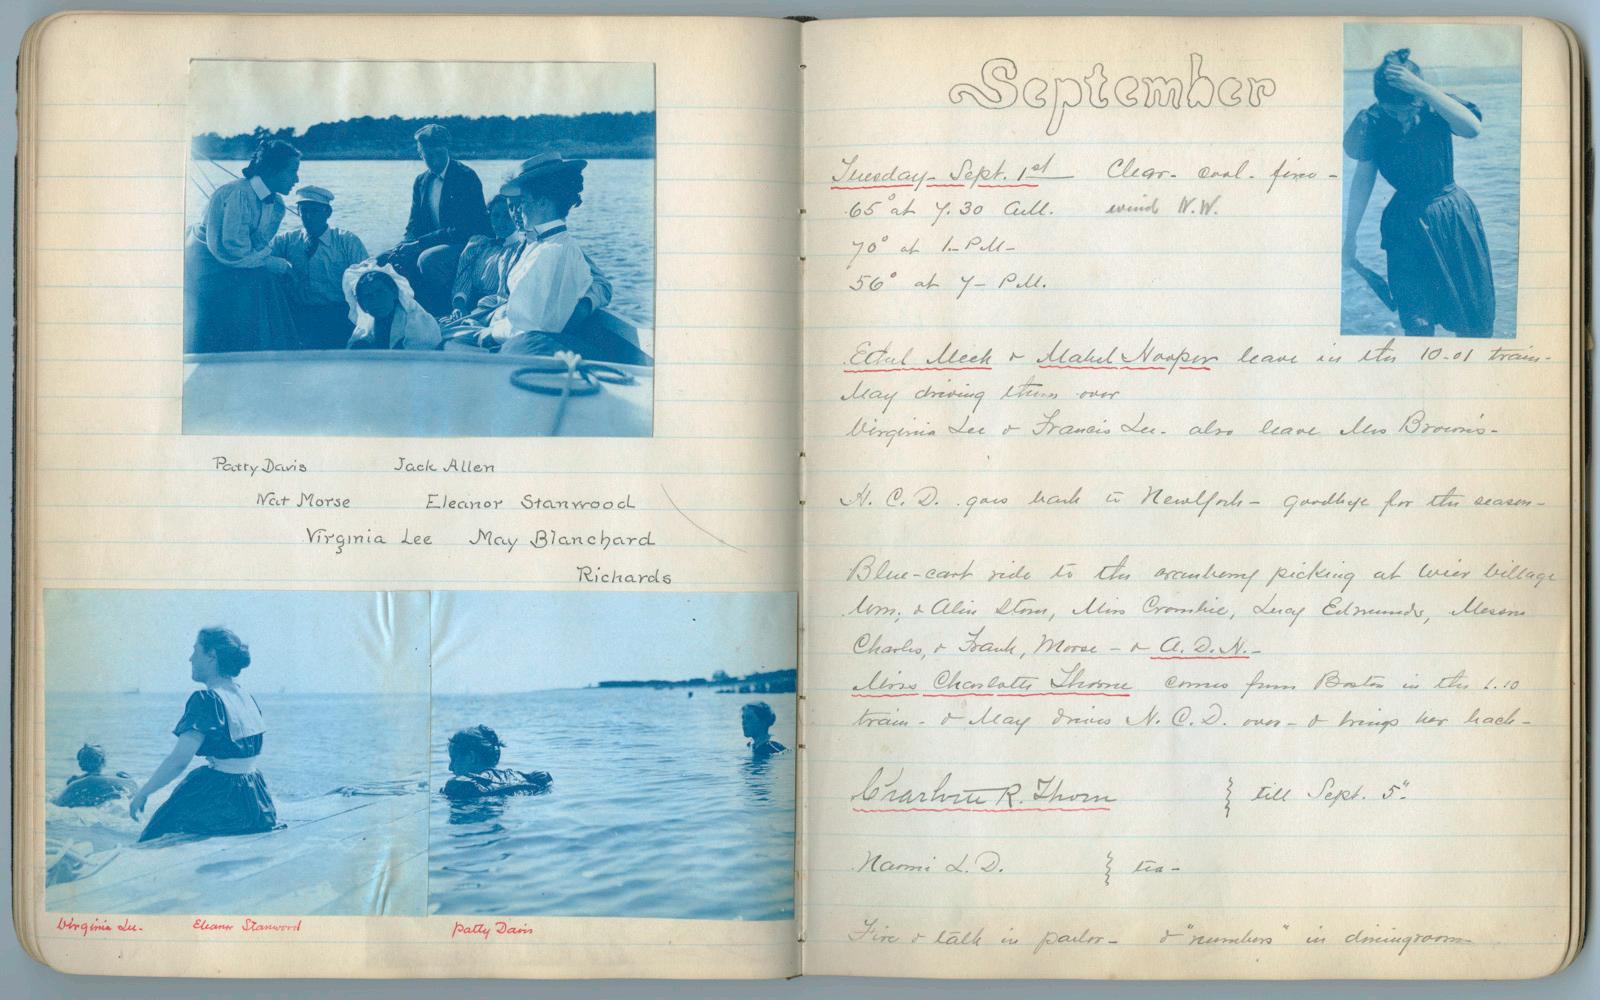 Patty Davis Jack Allen
Nat Morse Eleanor Stanwood
Virginia Lee May Blanchard
Richards
Virginia Lee. Eleanor Stanwood Patty Davis
September
Tuesday- Sept. 1st Clear- cool- fires-
65° at 7.30 A.M. wind N.W.
70° at 1- P.M-
56° at 7- P.M.
Ethel Meek & Mabel Hooper leave in the 10-01 train-
May driving them over
Virginia Lee & Francis Lee- also leave Mrs Brown's-
N. C. D. goes back to New York- goodbye for the season-
Blue-cart ride to the cranberry picking at Weir Village
Wm, & Alice Storn, Miss Crombie, Lucy Edmunds, Messrs
Charles, & Frank, Morse - & A. D. N.-
Miss Charlotte Thorne comes from Boston in the 1.10
train- & May drives N. C. D. over- & brings her back-
Charlotte R. Thorn } till Sept. 5"
Naomi L. D. } tea-
Fire & talk in parlor- & "numbers" in diningroom-